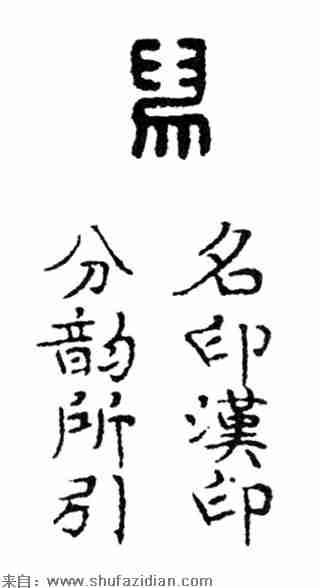 舄
名印漢印
分韵所引
来自：www.shufazidian.com